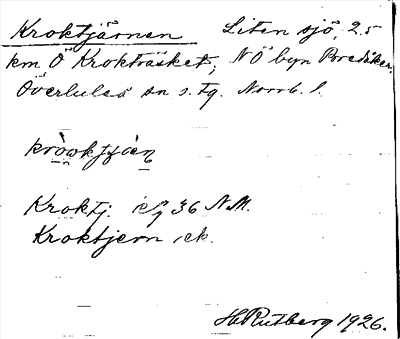 Kroktjärnen Liten sjö, 2.5
km Ö Krokträsket, NÖ byn Bredåker,
Överluleå sn s. tg. Norrb. l.
Kroktj. 36 N.M.
Kroktjern ek.
H Rutberg 1926.